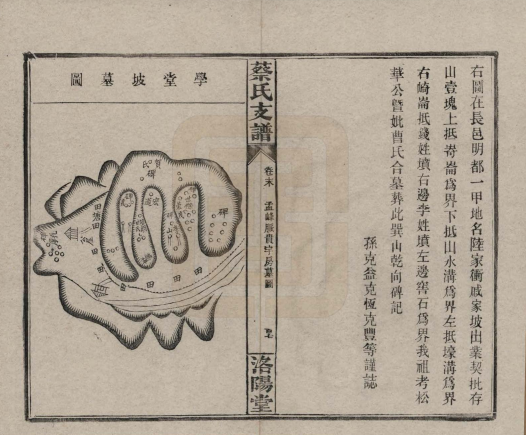 右圖在長邑明都一甲地名陸家衝戚家坡出業契批存
山壹塊上抵嵜崙爲界下抵山水溝爲界左抵壕溝爲界
右崎崙抵錢姓墳右邊李姓墳左邊窖石爲界我祖考松
華公暨妣曹氏合墓葬此巽山乾向碑記
孫克益克恆克豐等謹誌
蔡氏支譜
卷末
孟峰服貴字房墓圖
洛陽堂
學堂坡墓圖
賀氏碑
碑
田
田
田
田